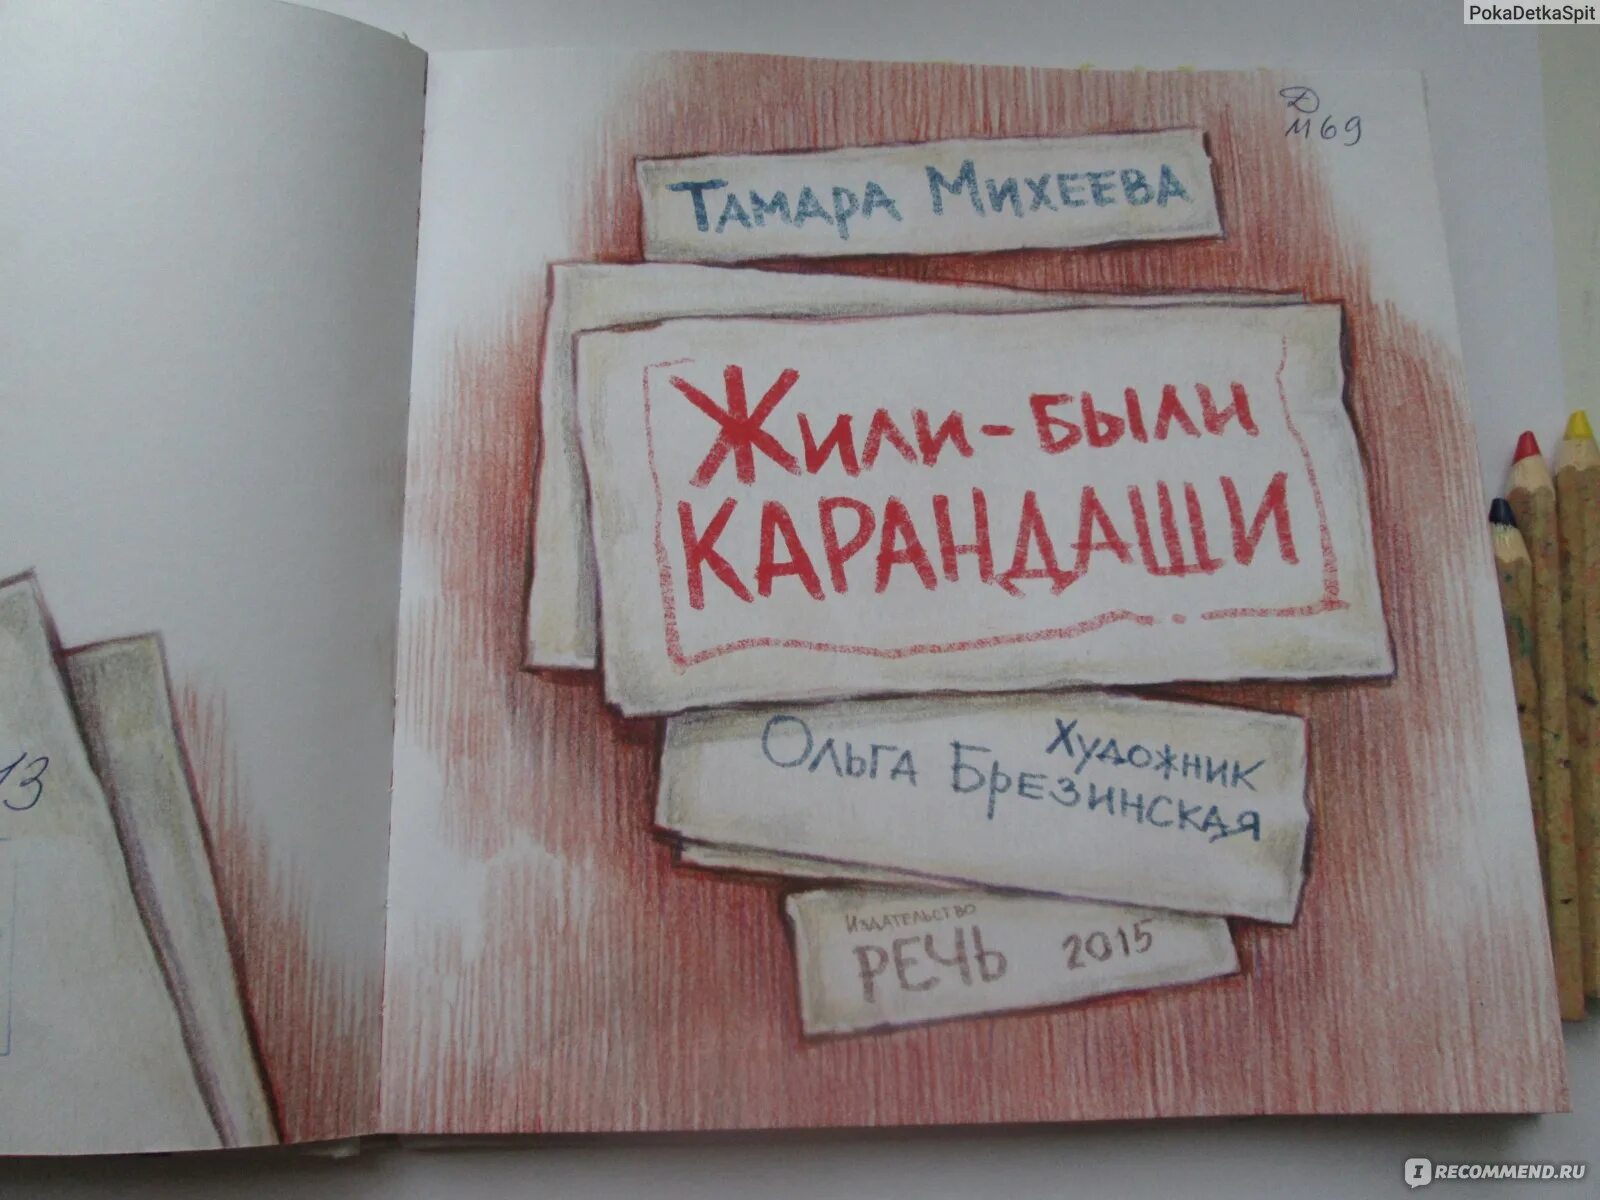 PokaDetkaSpit
Д
М69
Тамара Михеева
Жили-были
карандаши
Художник
Ольга Брезинская
Издательство
РЕЧЬ 2015
13
RECOMMEND.RU